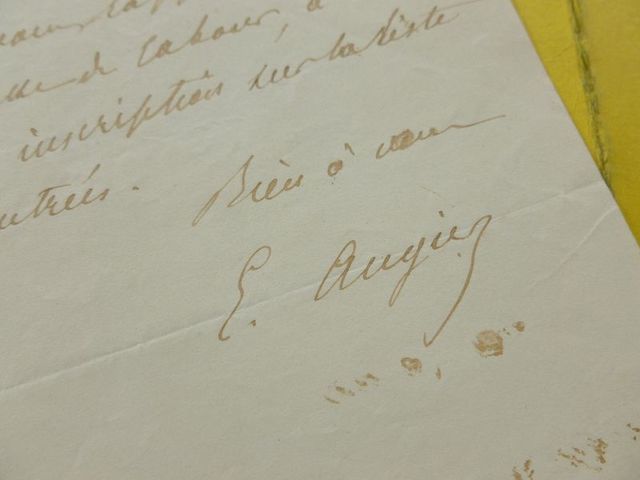 de labour, à
inscriptions sur la liste
entrées. Bien à vous
E. Augier